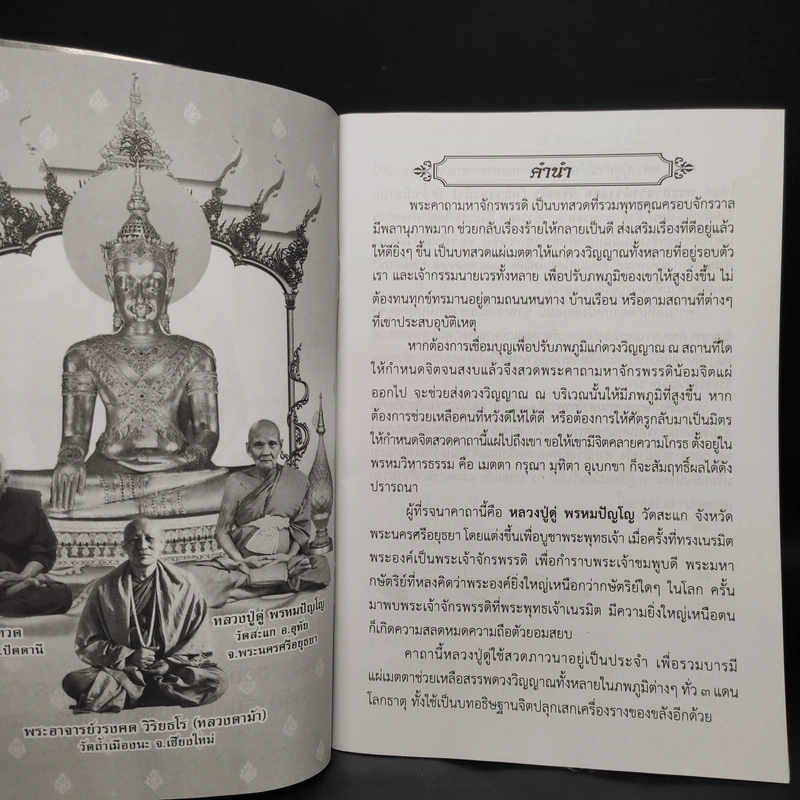 ทวด
.ปัตตานี
หลวงปู่ดู่ พรหมปัญโญ
วัดสะแก อ.อุทัย
จ.พระนครศรีอยุธยา
พระอาจารย์วรงคต วิริยธโร (หลวงตาม้า)
วัดถ้ำเมืองนะ จ.เชียงใหม่
คำนำ
พระคาถามหาจักรพรรดิ เป็นบทสวดที่รวมพุทธคุณครอบจักรวาล
มีพลานุภาพมาก ช่วยกลับเรื่องร้ายให้กลายเป็นดี ส่งเสริมเรื่องที่ดีอยู่แล้ว
ให้ดียิ่งๆ ขึ้น เป็นบทสวดแผ่เมตตาให้แก่ดวงวิญญาณทั้งหลายที่อยู่รอบตัว
เรา และเจ้ากรรมนายเวรทั้งหลาย เพื่อปรับภพภูมิของเขาให้สูงยิ่งขึ้น ไม่
ต้องทนทุกข์ทรมานอยู่ตามถนนหนทาง บ้านเรือน หรือตามสถานที่ต่างๆ
ที่เขาประสบอุบัติเหตุ
หากต้องการเชื่อมบุญเพื่อปรับภพภูมิแก่ดวงวิญญาณ ณ สถานที่ใด
ให้กำหนดจิตจนสงบแล้วจึงสวดพระคาถามหาจักรพรรดิน้อมจิตแผ่
ออกไป จะช่วยส่งดวงวิญญาณ ณ บริเวณนั้นให้มีภพภูมิที่สูงขึ้น หาก
ต้องการช่วยเหลือคนที่หวังดีให้ได้ดี หรือต้องการให้ศัตรูกลับมาเป็นมิตร
ให้กำหนดจิตสวดคาถานี้แผ่ไปถึงเขา ขอให้เขามีจิตคลายความโกรธ ตั้งอยู่ใน
พรหมวิหารธรรม คือ เมตตา กรุณา มุทิตา อุเบกขา ก็จะสัมฤทธิ์ผลได้ดัง
ปรารถนา
ผู้ที่รจนาคาถานี้คือ หลวงปู่ดู่ พรหมปัญโญ วัดสะแก จังหวัด
พระนครศรีอยุธยา โดยแต่งขึ้นเพื่อบูชาพระพุทธเจ้า เมื่อครั้งที่ทรงเนรมิต
พระองค์เป็นพระเจ้าจักรพรรดิ เพื่อกำราบพระเจ้าชมพูบดี พระมหา
กษัตริย์ที่หลงคิดว่าพระองค์ยิ่งใหญ่เหนือกว่ากษัตริย์ใดๆ ในโลก ครั้น
มาพบพระเจ้าจักรพรรดิที่พระพุทธเจ้าเนรมิต มีความยิ่งใหญ่เหนือตน
ก็เกิดความสลดหมดความถือตัวยอมสยบ
คาถานี้หลวงปู่ดู่ใช้สวดภาวนาอยู่เป็นประจำ เพื่อรวมบารมี
แผ่เมตตาช่วยเหลือสรรพดวงวิญญาณทั้งหลายในภพภูมิต่างๆ ทั่ว ๓ แดน
โลกธาตุ ทั้งใช้เป็นบทอธิษฐานจิตปลุกเสกเครื่องรางของขลังอีกด้วย